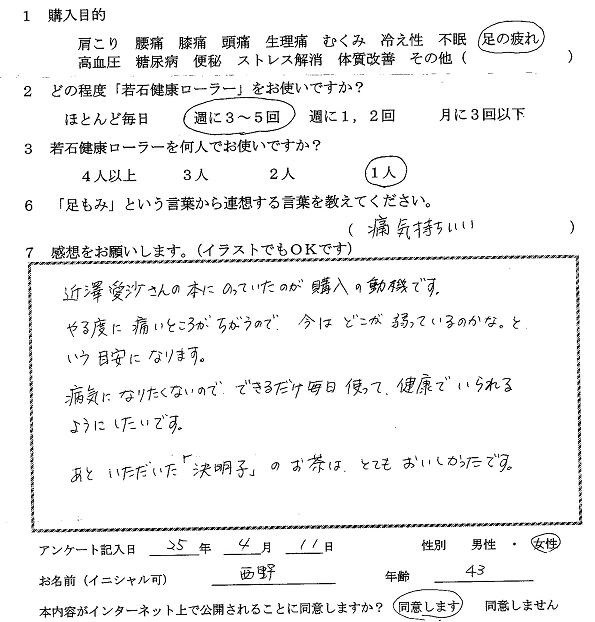 1 購入目的
肩こり 腰痛 膝痛 頭痛 生理痛 むくみ 冷え性 不眠 足の疲れ
高血圧 糖尿病 便秘 ストレス解消 体質改善 その他( )
2 どの程度「若石健康ローラー」をお使いですか?
ほとんど毎日 週に3~5回 週に1,2回 月に3回以下
3 若石健康ローラーを何人でお使いですか?
4人以上 3人 2人 1人
6 「足もみ」という言葉から連想する言葉を教えてください。
( 痛気持ちいい )
7 感想をお願いします。(イラストでもOKです)
近澤愛沙さんの本にのっていたのが購入の動機です。
やる度に痛いところがちがうので、今はどこが弱っているのかな。と
いう目安になります。
病気になりたくないので、できるだけ毎日使って、健康でいられる
ようにしたいです。
あといただいた「決明子」のお茶は、とてもおいしかったです。
アンケート記入日 25 年 4 月 11 日 性別 男性 ・ 女性
お名前(イニシャル可) 西野 年齢 43
本内容がインターネット上で公開されることに同意しますか? 同意します 同意しません